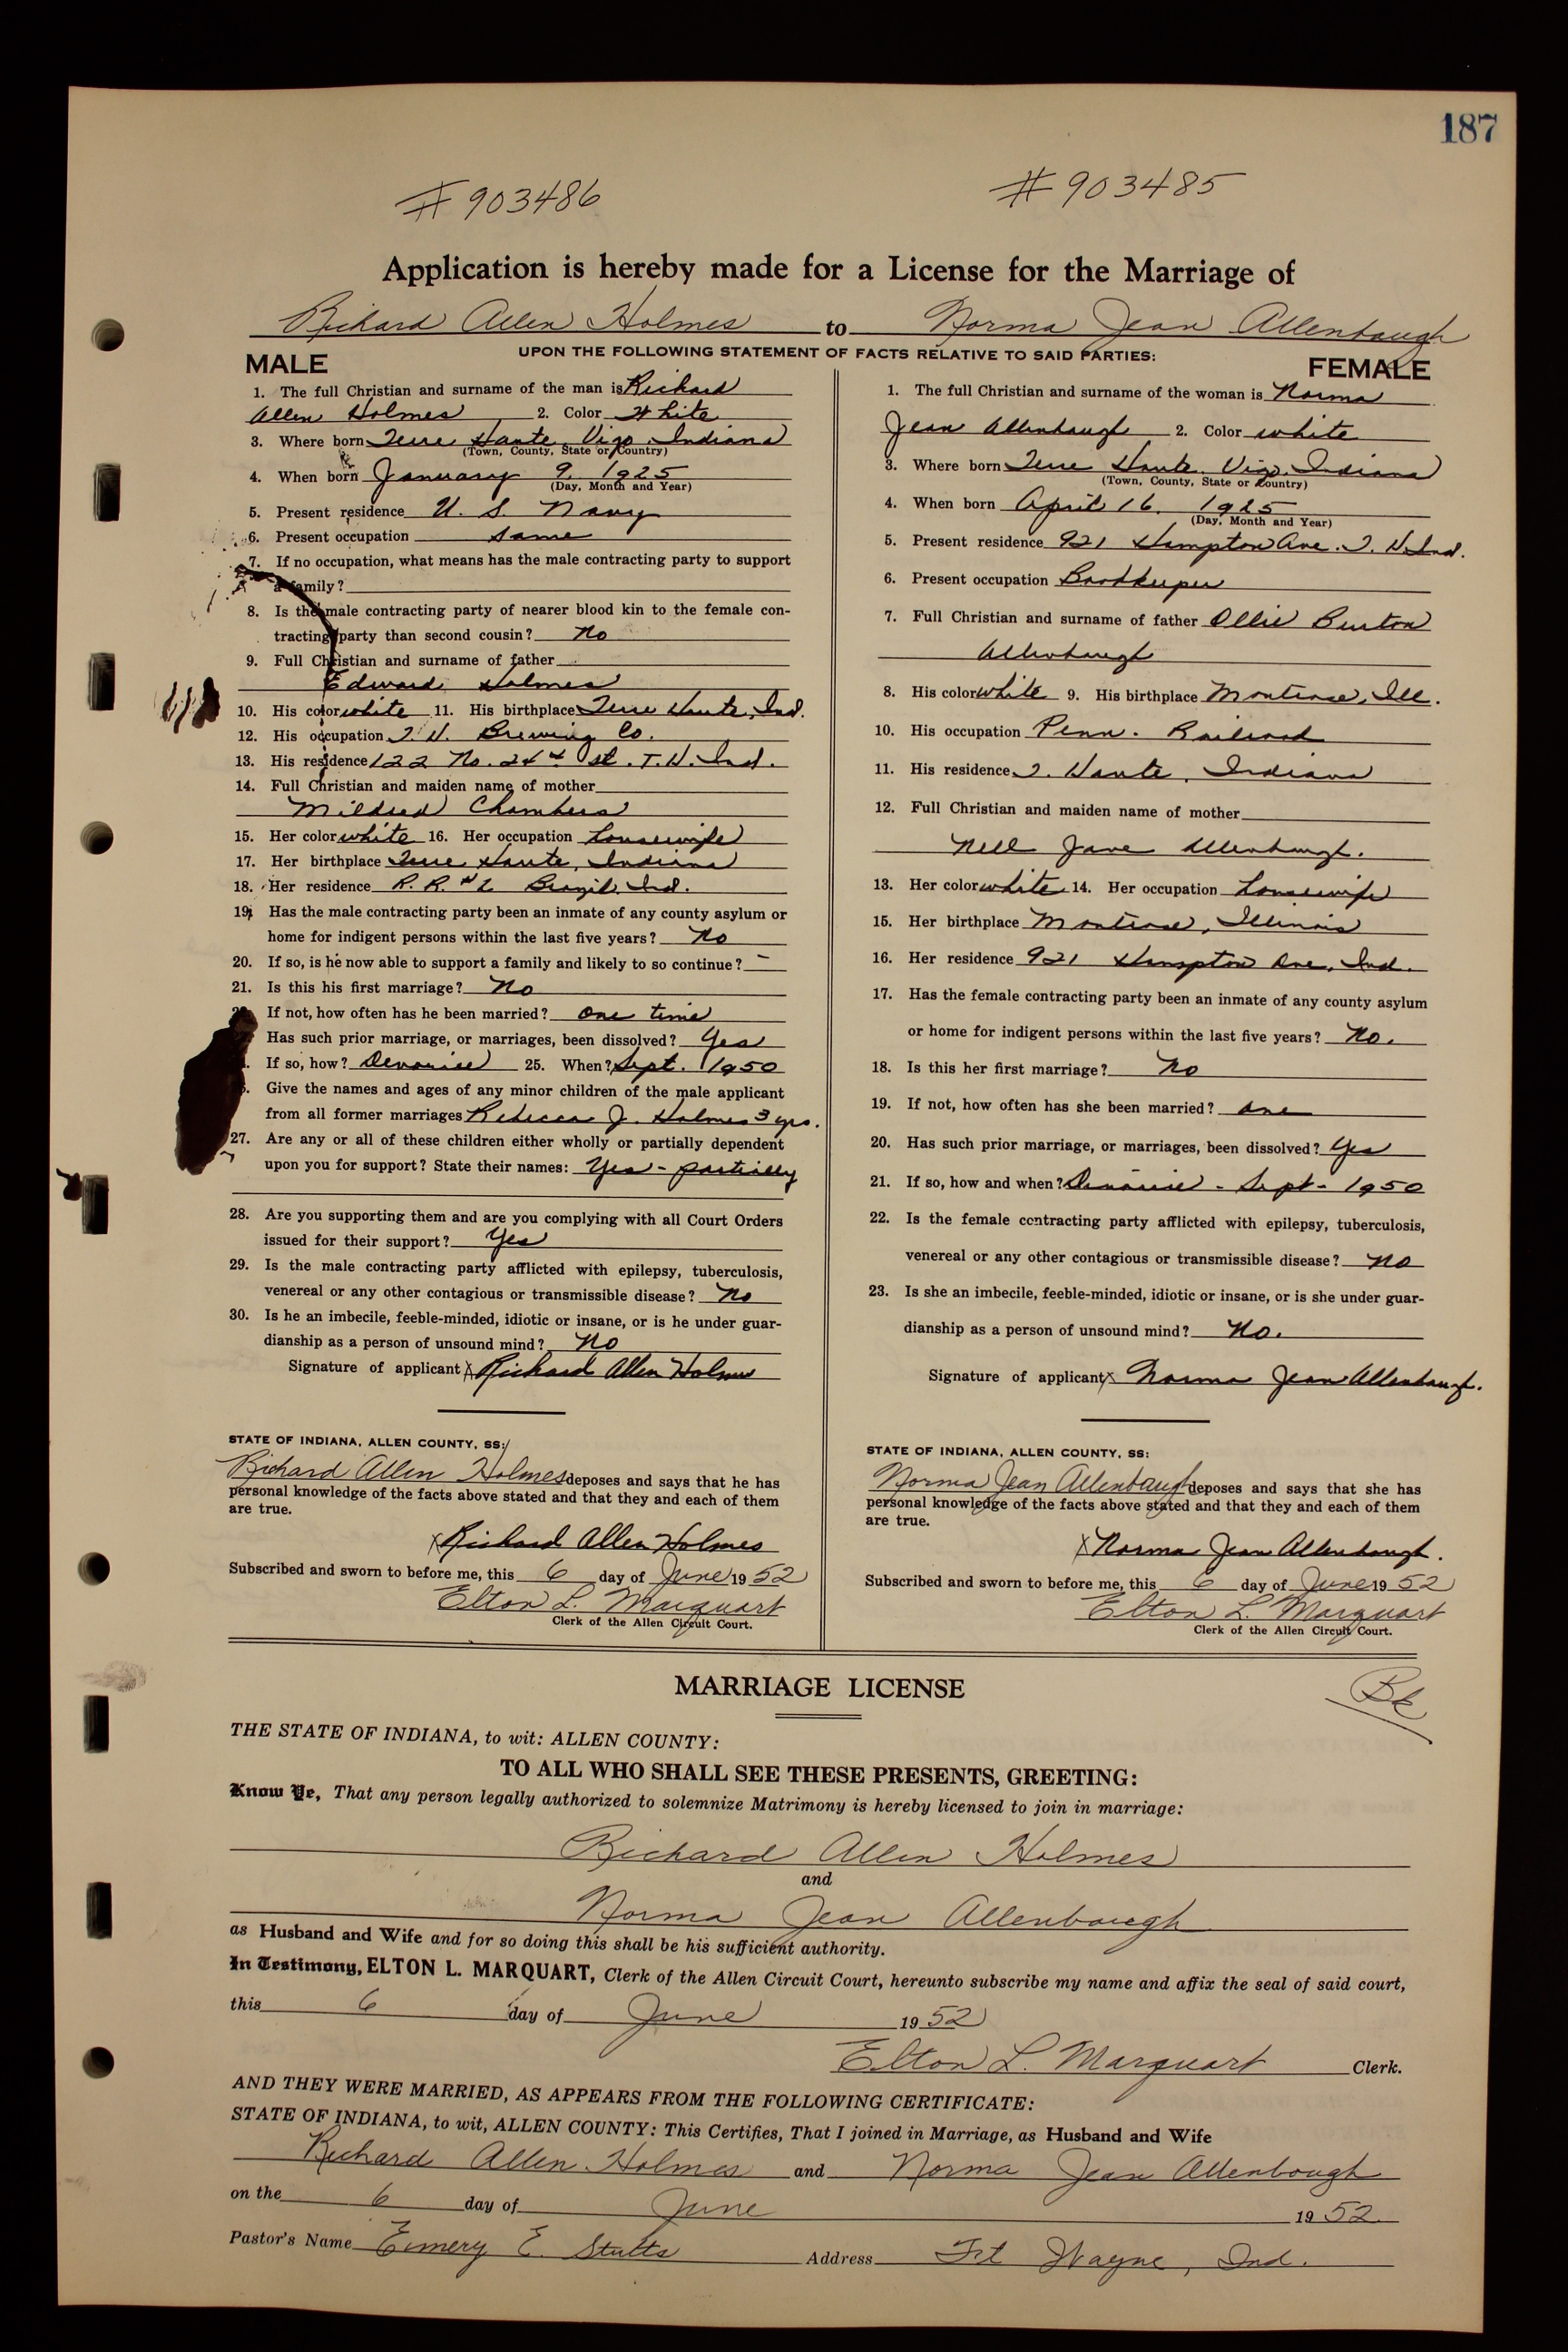 187
#903486 #903485
Application is hereby made for a License for the Marriage of
Richard Allen Holmes to Norma Jean Allenbaugh
UPON THE FOLLOWING STATEMENT OF FACTS RELATIVE TO SAID PARTIES:
MALE
1. The full Christian and surname of the man is Richard
Allen Holmes 2. Color White
3. Where born Terre Haute, Vigo, Indiana
(Town, County, State or Country)
4. When born January 9, 1925
(Day, Month and Year)
5. Present residence U. S. Navy
6. Present occupation same
7. If no occupation, what means has the male contracting party to support
a family?
8. Is the male contracting party of nearer blood kin to the female con-
tracting party than second cousin? no
9. Full Christian and surname of father
Edward Holmes
10. His color white 11. His birthplace Terre Haute, Ind.
12. His occupation T. H. Brewing Co.
13. His residence 122 No. St. T. H. Ind.
14. Full Christian and maiden name of mother
Mildred Chambers
15. Her color white 16. Her occupation housewife
17. Her birthplace Terre Haute, Indiana
18. Her residence R. R. # Brazil, Ind.
19. Has the male contracting party been an inmate of any county asylum or
home for indigent persons within the last five years? no
20. If so, is he now able to support a family and likely to so continue? -
21. Is this his first marriage? no
If not, how often has he been married? one time
Has such prior marriage, or marriages, been dissolved? yes
If so, how? Devorise 25. When? Sept. 1950
Give the names and ages of any minor children of the male applicant
from all former marriages Rebecca J. Holmes 3 yrs.
27. Are any or all of these children either wholly or partially dependent
upon you for support? State their names: Yes - partially
28. Are you supporting them and are you complying with all Court Orders
issued for their support? Yes
29. Is the male contracting party afflicted with epilepsy, tuberculosis,
venereal or any other contagious or transmissible disease? no
30. Is he an imbecile, feeble-minded, idiotic or insane, or is he under guar-
dianship as a person of unsound mind? no
Signature of applicant x Richard Allen Holmes
STATE OF INDIANA, ALLEN COUNTY, SS:
Richard Allen Holmes deposes and says that he has
personal knowledge of the facts above stated and that they and each of them
are true.
x Richard Allen Holmes
Subscribed and sworn to before me, this 6 day of June 19 52
Elton L. Marquart
Clerk of the Allen Circuit Court.
FEMALE
1. The full Christian and surname of the woman is Norma
Jean Allenbaugh 2. Color white
3. Where born Terre Haute, Vigo, Indiana
(Town, County, State or Country)
4. When born April 16, 1925
(Day, Month and Year)
5. Present residence 921 Hampton Ave. T. H. Ind.
6. Present occupation Bookkeeper
7. Full Christian and surname of father Ollie Burton
Allenbaugh
8. His color white 9. His birthplace Montrose, Ill.
10. His occupation Penn. Railroad
11. His residence T. Haute, Indiana
12. Full Christian and maiden name of mother
Nell Jane Allenbaugh.
13. Her color white 14. Her occupation housewife
15. Her birthplace Montrose, Illinois
16. Her residence 921 Hampton Ave, Ind.
17. Has the female contracting party been an inmate of any county asylum
or home for indigent persons within the last five years? No.
18. Is this her first marriage? No
19. If not, how often has she been married? one
20. Has such prior marriage, or marriages, been dissolved? Yes
21. If so, how and when? Devorise - Sept - 1950
22. Is the female contracting party afflicted with epilepsy, tuberculosis,
venereal or any other contagious or transmissible disease? no
23. Is she an imbecile, feeble-minded, idiotic or insane, or is she under guar-
dianship as a person of unsound mind? No.
Signature of applicant x Norma Jean Allenbaugh.
STATE OF INDIANA, ALLEN COUNTY, SS:
Norma Jean Allenbaugh deposes and says that she has
personal knowledge of the facts above stated and that they and each of them
are true.
x Norma Jean Allenbaugh.
Subscribed and sworn to before me, this 6 day of June 19 52
Elton L. Marquart
Clerk of the Allen Circuit Court.
MARRIAGE LICENSE
THE STATE OF INDIANA, to wit: ALLEN COUNTY:
TO ALL WHO SHALL SEE THESE PRESENTS, GREETING:
Know Ye, That any person legally authorized to solemnize Matrimony is hereby licensed to join in marriage:
Richard Allen Holmes
and
Norma Jean Allenbaugh
as Husband and Wife and for so doing this shall be his sufficient authority.
In Testimony, ELTON L. MARQUART, Clerk of the Allen Circuit Court, hereunto subscribe my name and affix the seal of said court,
this 6 day of June 19 52
Elton L. Marquart Clerk.
AND THEY WERE MARRIED, AS APPEARS FROM THE FOLLOWING CERTIFICATE:
STATE OF INDIANA, to wit, ALLEN COUNTY: This Certifies, That I joined in Marriage, as Husband and Wife
Richard Allen Holmes and Norma Jean Allenbaugh
on the 6 day of June 19 52
Pastor's Name Emery E. Stutts Address Frt Wayne, Ind.